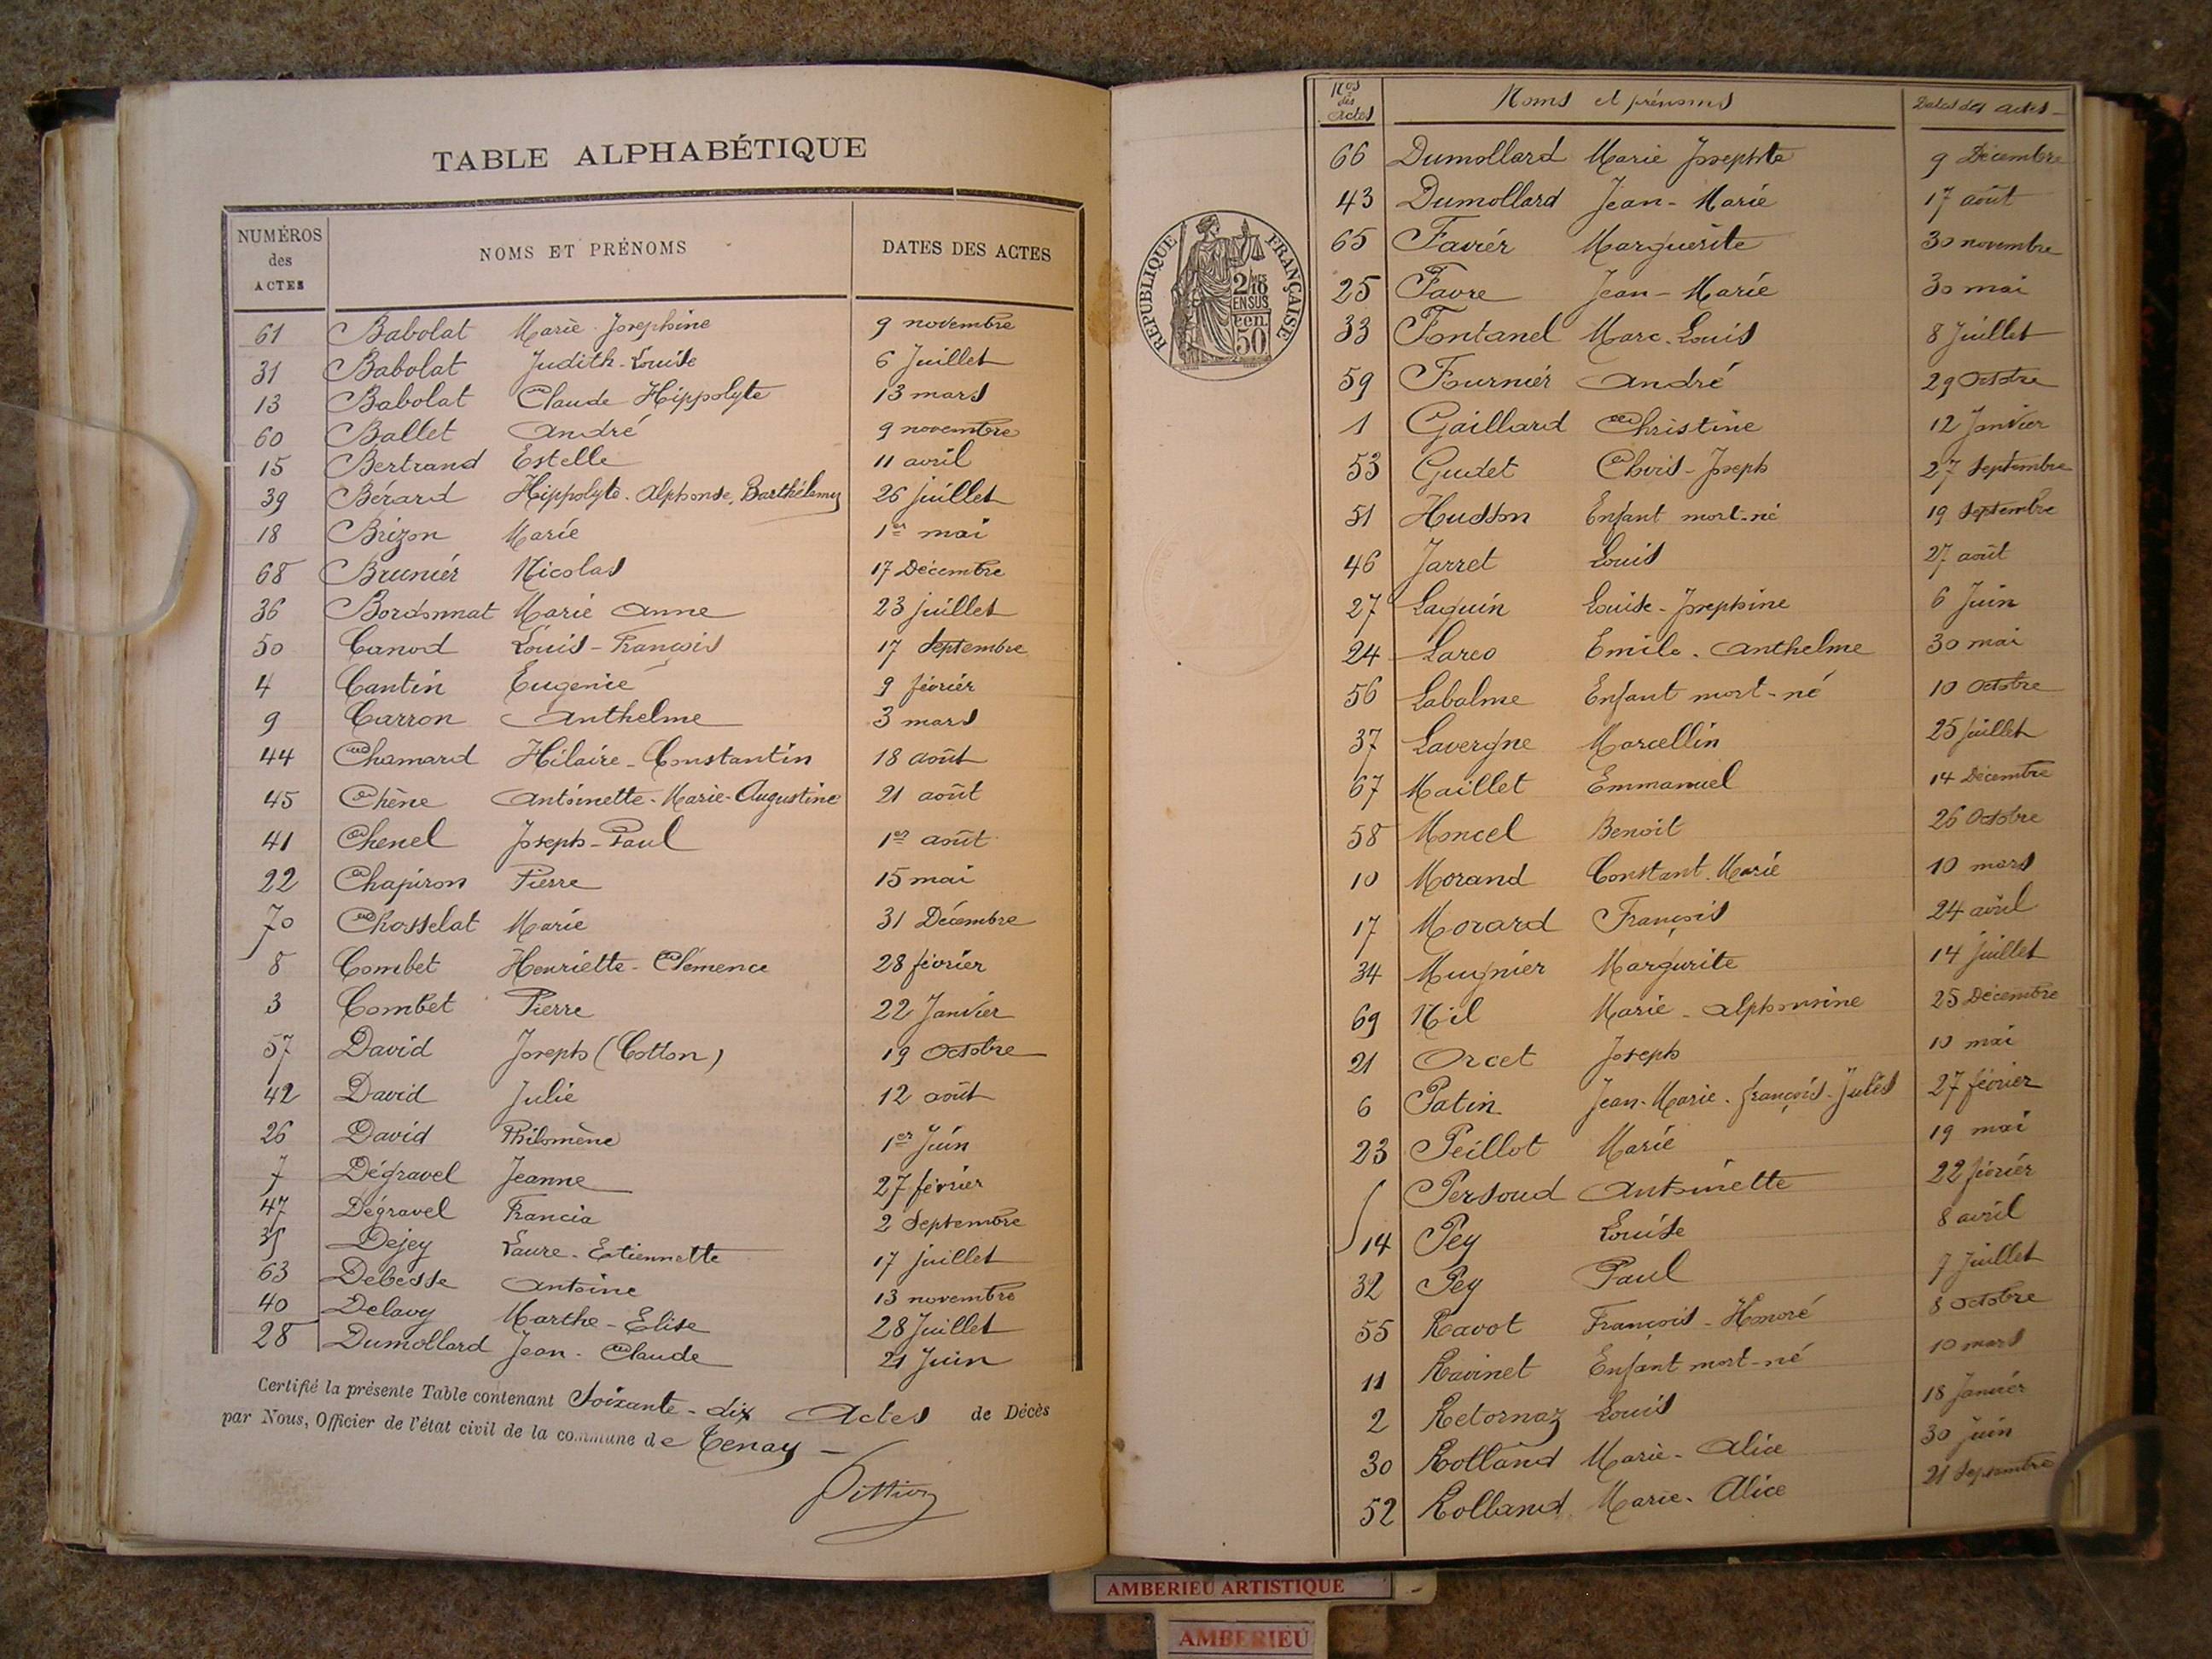 TABLE ALPHABÉTIQUE
NUMÉROS des ACTES NOMS ET PRÉNOMS DATES DES ACTES
61 Babolat Marie Josephine 9 novembre
31 Babolat Judith-Louise 6 Juillet
13 Babolat Claude Hippolyte 13 mars
60 Ballet André 9 novembre
15 Bertrand Estelle 11 avril
39 Bérard Hippolyte. Alphonse. Barthélemy 26 juillet
18 Brizon Marie 1er mai
68 Brunier Nicolas 17 Décembre
36 Bordonnat Marie Anne 23 juillet
50 Canod Louis-François 17 Septembre
4 Cantin Eugenie 9 février
9 Carron Anthelme 3 mars
44 Chamard Hilaire-Constantin 18 août
45 Chêne Antoinette-Marie-Augustine 21 août
41 Chenel Joseph-Paul 1er août
22 Chapiron Pierre 15 mai
70 Chosselat Marie 31 Décembre
8 Combet Henriette-Clémence 28 février
3 Combet Pierre 22 Janvier
57 David Joseph (Cotton) 19 Octobre
42 David Julie 12 août
26 David Philomène 1er Juin
7 Dégravel Jeanne 27 février
47 Dégravel Francia 2 Septembre
35 Dejey Laure-Estiennette 17 juillet
63 Debesse Antoine 13 novembre
40 Delavy Marthe-Elise 28 Juillet
28 Dumollard Jean-Claude 21 Juin
Certifié la présente Table contenant Soixante-dix Actes de Décès
par Nous, Officier de l'état civil de la commune de Tenay
Nos des Actes Noms et prénoms Dates des actes
66 Dumollard Marie Josephte 9 Décembre
43 Dumollard Jean-Marie 17 août
65 Favier Marguerite 30 novembre
25 Favre Jean-Marie 30 mai
33 Fontanel Marc-Louis 8 Juillet
59 Fournier André 29 Octobre
1 Gaillard Christine 12 Janvier
53 Gudet Clovis-Joseph 27 Septembre
51 Hudson Enfant mort-né 19 Septembre
46 Jarret Louis 27 août
27 Laguin Louise-Josephine 6 Juin
24 Larco Emile. Anthelme 30 mai
56 Labalme Enfant mort-né 10 Octobre
37 Lavergne Marcellin 25 Juillet
67 Maillet Emmanuel 14 Décembre
58 Moncel Benoit 26 Octobre
10 Morand Constant. Marie 10 mars
17 Morard François 24 avril
34 Mugnier Margurite 14 juillet
69 Nil Marie-Alphonsine 25 Décembre
21 Orcet Joseph 10 mai
6 Patin Jean-Marie-françois-Jules 27 février
23 Peillot Marie 19 mai
5 Persoud Antoinette 22 février
14 Pey Louise 8 avril
32 Pey Paul 7 Juillet
55 Ravot François-Honoré 8 Octobre
11 Ravinet Enfant mort-né 10 mars
2 Retornaz Louis 18 Janvier
30 Rolland Marie-Alice 30 juin
52 Rolland Marie-Alice 21 Septembre
RÉPUBLIQUE FRANÇAISE
2/10 MES
EN SUS
50 cen.
AMBERIEU ARTISTIQUE
AMBERIEU